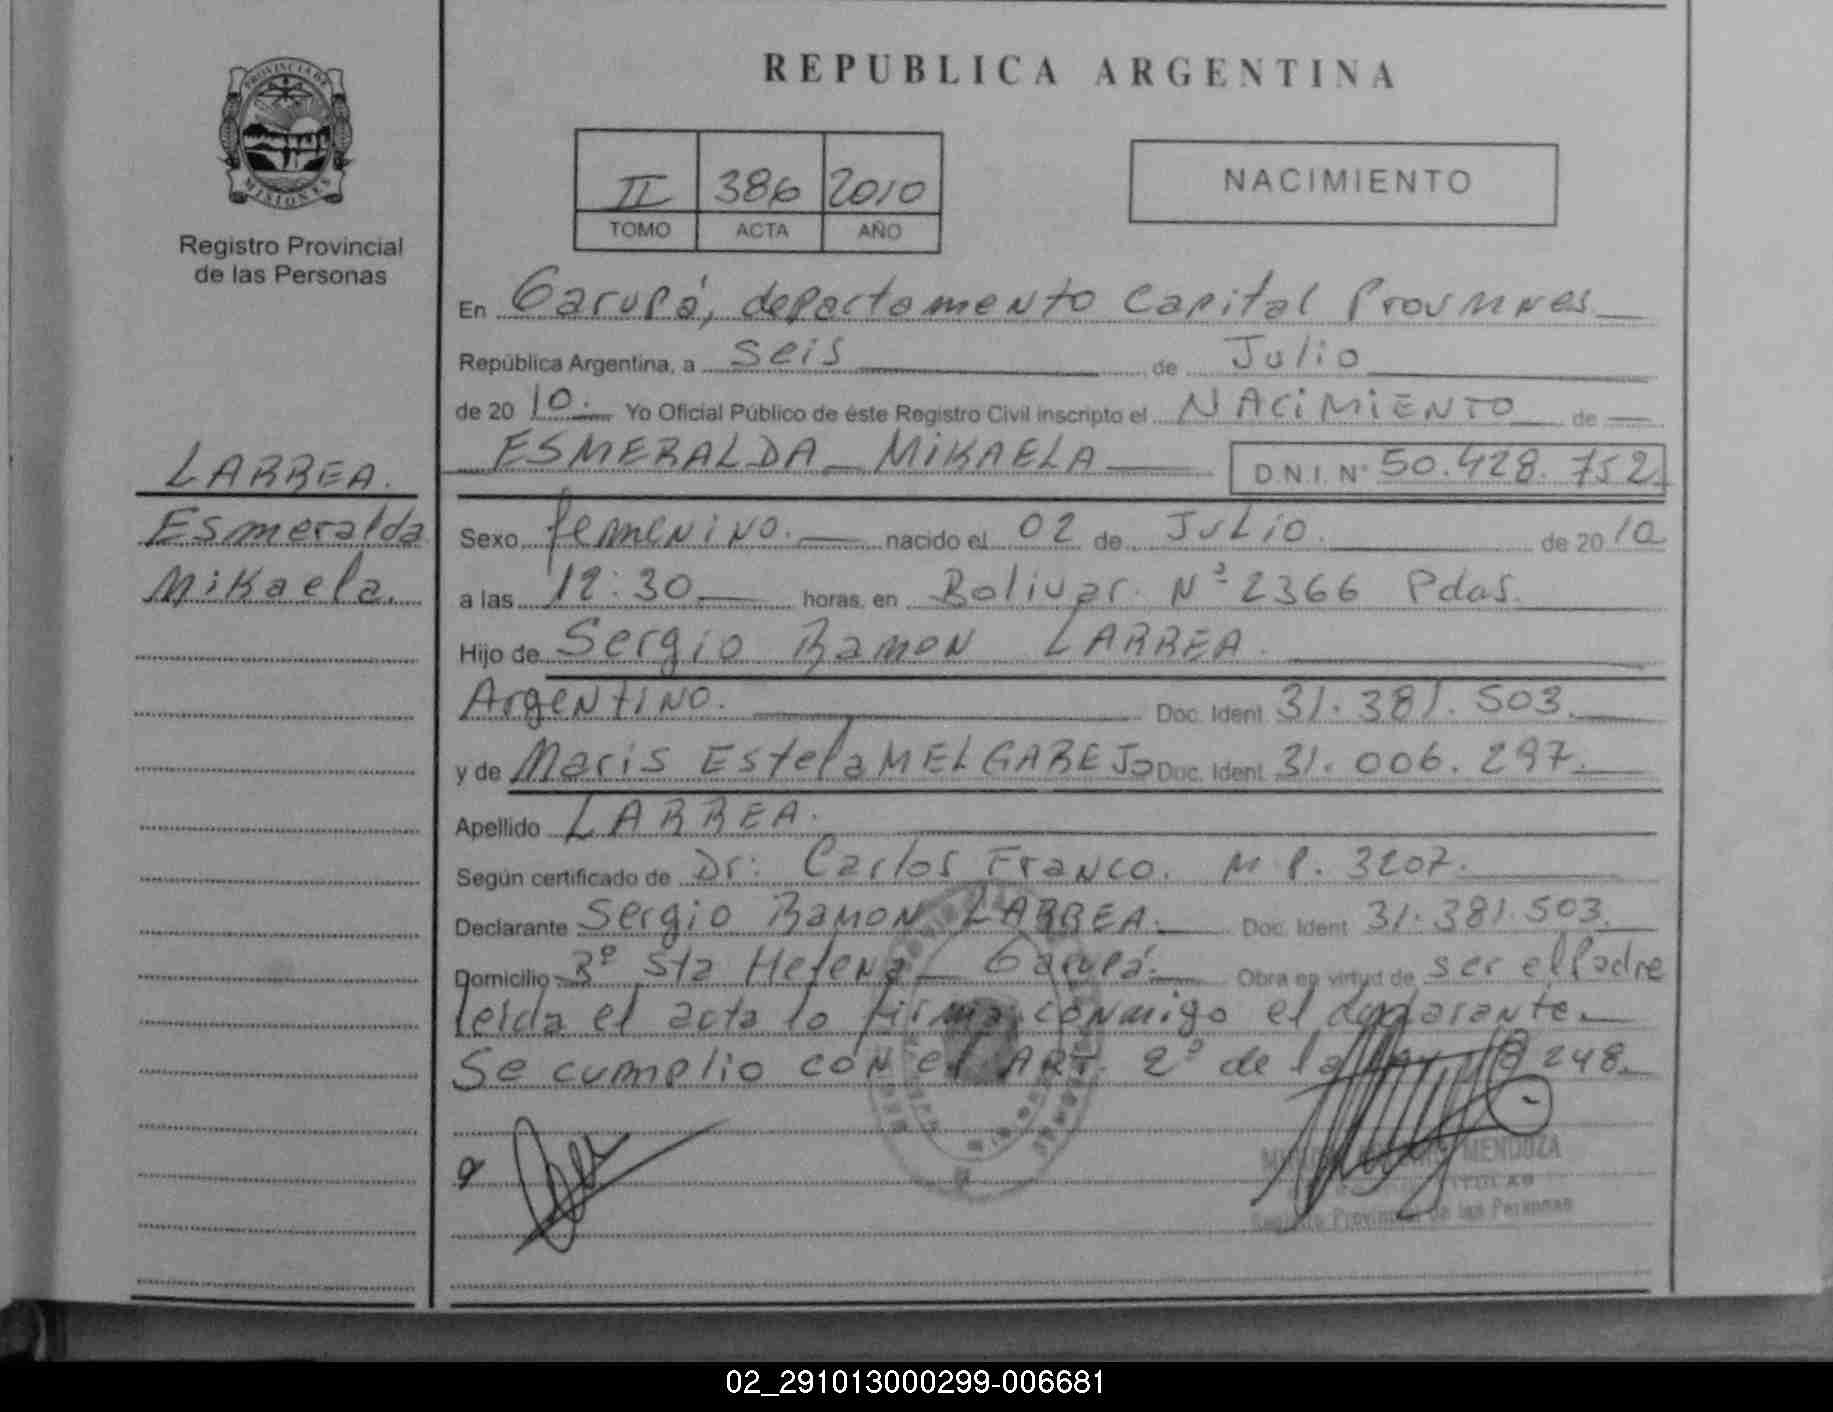 PROVINCIA DE
MISIONES
Registro Provincial
de las Personas
LARREA.
Esmeralda
Mikaela.
REPUBLICA ARGENTINA
II 386 2010
TOMO ACTA AÑO
NACIMIENTO
En Garupá, departamento Capital Prov Mnes
República Argentina, a seis de Julio
de 2010. Yo Oficial Público de éste Registro Civil inscripto el NACIMIENTO de
ESMERALDA MIKAELA D.N.I. Nº 50.428.752
Sexo femenino. nacido el 02 de JULIO. de 2010
a las 12:30 horas, en Bolivar. Nº 2366 Pdas.
Hijo de Sergio Ramon LARREA.
Argentino. Doc. Ident. 31.381.503.
y de Maris Estela MELGAREJO Doc. Ident. 31.006.297.
Apellido LARREA.
Según certificado de Dr: Carlos Franco. M P. 3207.
Declarante Sergio Ramon LARREA. Doc. Ident. 31.381.503.
Domicilio Bº Sta Helena Garupá. Obra en virtud de ser el Padre
leida el acta lo firma conmigo el declarante.
Se cumplio con el ART. 2º de la Ley 18.248.
MENDOZA
TITULAR
Registro Provincial de las Personas
02_291013000299-006681